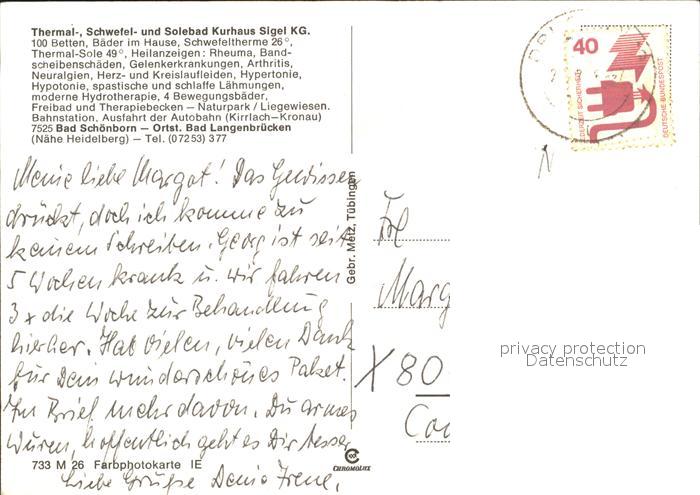 Thermal-, Schwefel- und Solebad Kurhaus Sigel KG.
100 Betten, Bäder im Hause, Schwefeltherme 26°,
Thermal-Sole 49°, Heilanzeigen: Rheuma, Band-
scheibenschäden, Gelenkerkrankungen, Arthritis,
Neuralgien, Herz- und Kreislaufleiden, Hypertonie,
Hypotonie, spastische und schlaffe Lähmungen,
moderne Hydrotherapie, 4 Bewegungsbäder,
Freibad und Therapiebecken — Naturpark / Liegewiesen.
Bahnstation, Ausfahrt der Autobahn (Kirrlach-Kronau)
7525 Bad Schönborn — Ortst. Bad Langenbrücken
(Nähe Heidelberg) — Tel. (07253) 377
Meine liebe Margot! Das Gewissen
drückt, doch ich komme zu
keinem Schreiben. Georg ist seit
5 Wochen krank u. wir fahren
3 x die Woche zur Behandlung
hierher. Hab vielen, vielen Dank
für Dein wunderschönes Paket.
Im Brief mehr davon. Du armes
hoffentlich geht es Dir besser
Liebe Grüße Deine Irene.
733 M 26 Farbphotokarte IE
Gebr. Metz, Tübingen
CHROMOLUX
40
JEDERZEIT SICHERHEIT
DEUTSCHE BUNDESPOST
Frl
Marg
X 80
privacy protection
Datenschutz